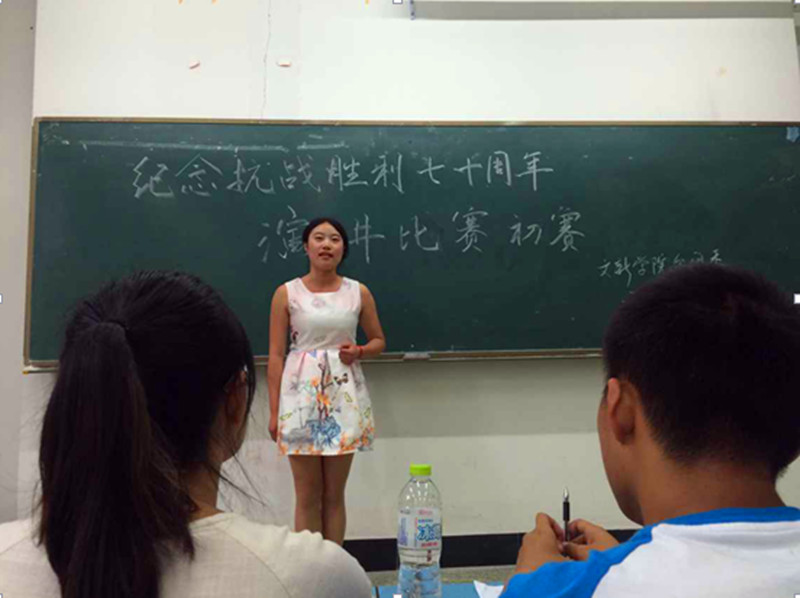 纪念抗战胜利七十周年
演讲比赛初赛
文新学院